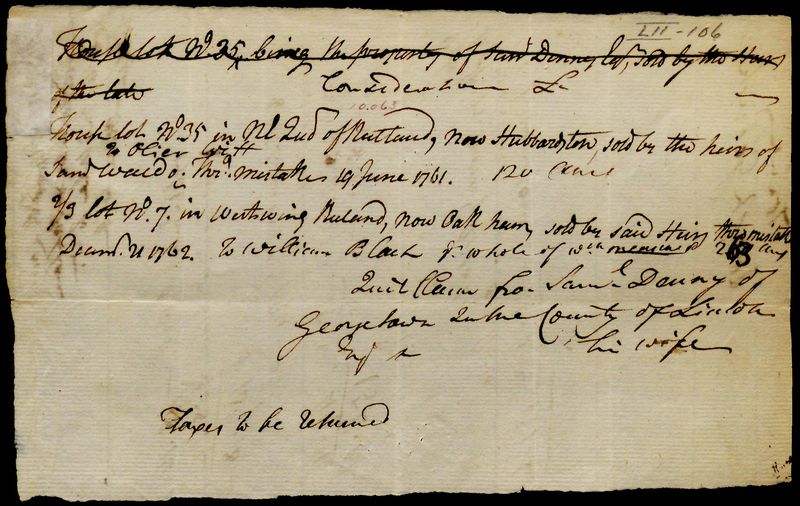 LII-106
House lot No. 35, being the property of Saml Denny Esq, Sold by the Heirs
of the late Consideration £
10.063
House lot No 35 in NE Quar of Rutland, now Hubbardston, sold by the heirs of
to Olier Witt
Saml Waldo, Thro mistake 19 June 1761. 120 Acres
2/3 lot No. 7. in West wing Ruland, now Oakham, sold by said Heirs thro mistake
Decemr. 21 1762. to William Black ye whole of wch 263
Quit Claim fro Saml Denny of
Georgetown In the County of Lincoln
Esq & his wife
Taxes to be returned